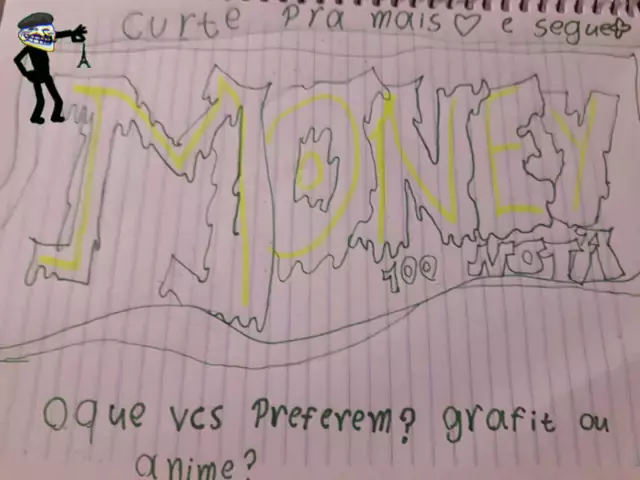 curte pra mais♡ e segue+
MONEY
100 NOTA
Oque vcs Preferem? grafit ou
anime?